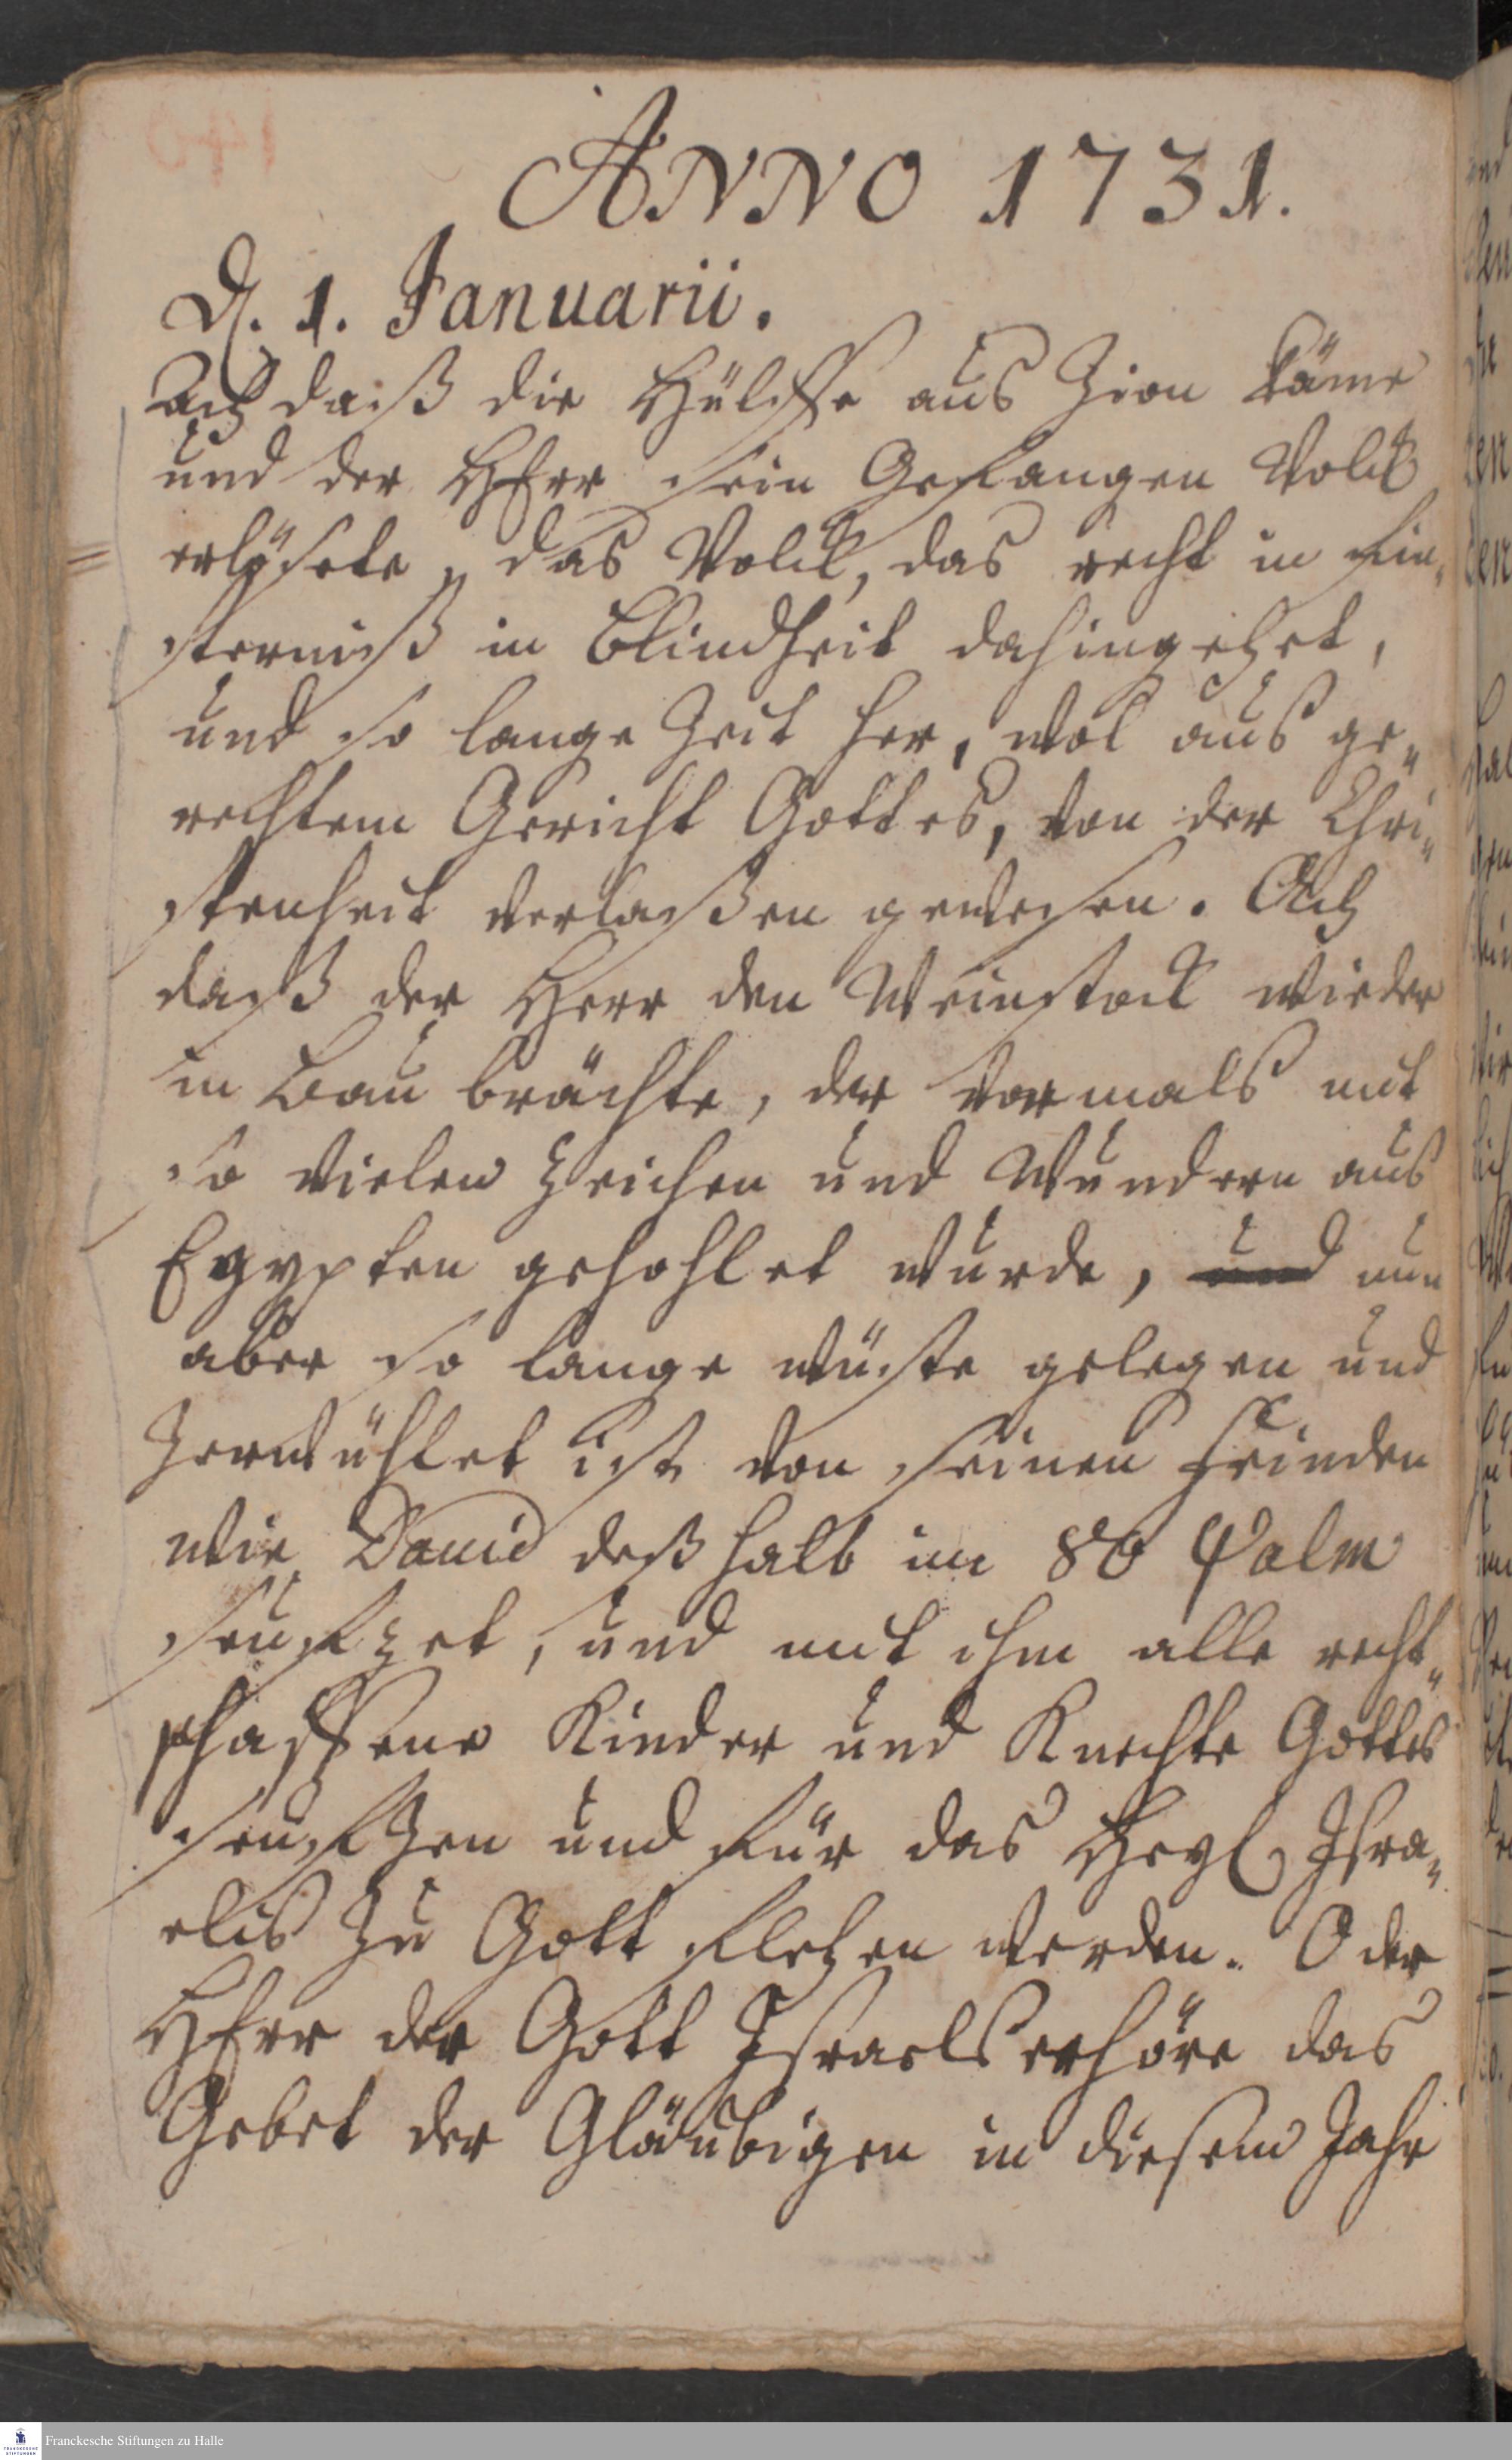 ANNO 1731.
D. 1. Januarii.
Ach daß die Hülffe aus Zion käme
und der HErr sein Gefangen Volck
erlösete, das Volck, das recht in Fin„
sterniß in Blindheit dahingehet,
und so lange Zeit her, wol aus ge„
rechtem Gericht Gottes, von der Chri„
stenheit verlaßen gewesen. Ach
daß der Herr den Weinstock wieder
in Bau brächte, der vormals mit
so vielen Zeichen und Wundern aus
Egypten gehohlet wurde, und nun
aber so lange wüste gelegen und
Zerwühlet ist von seinen Feinden
wie David deßhalb im 80 Psalm
seufzet, und mit ihm alle recht„
schaffene Kinder und Knechte Gottes
seufzen und für das Heyl Isra„
elis zu Gott flehen werden. O der
HErr der Gott Israels erhöre das
Gebet der Gläubigen in diesem Jahr
Franckesche Stiftungen zu Halle